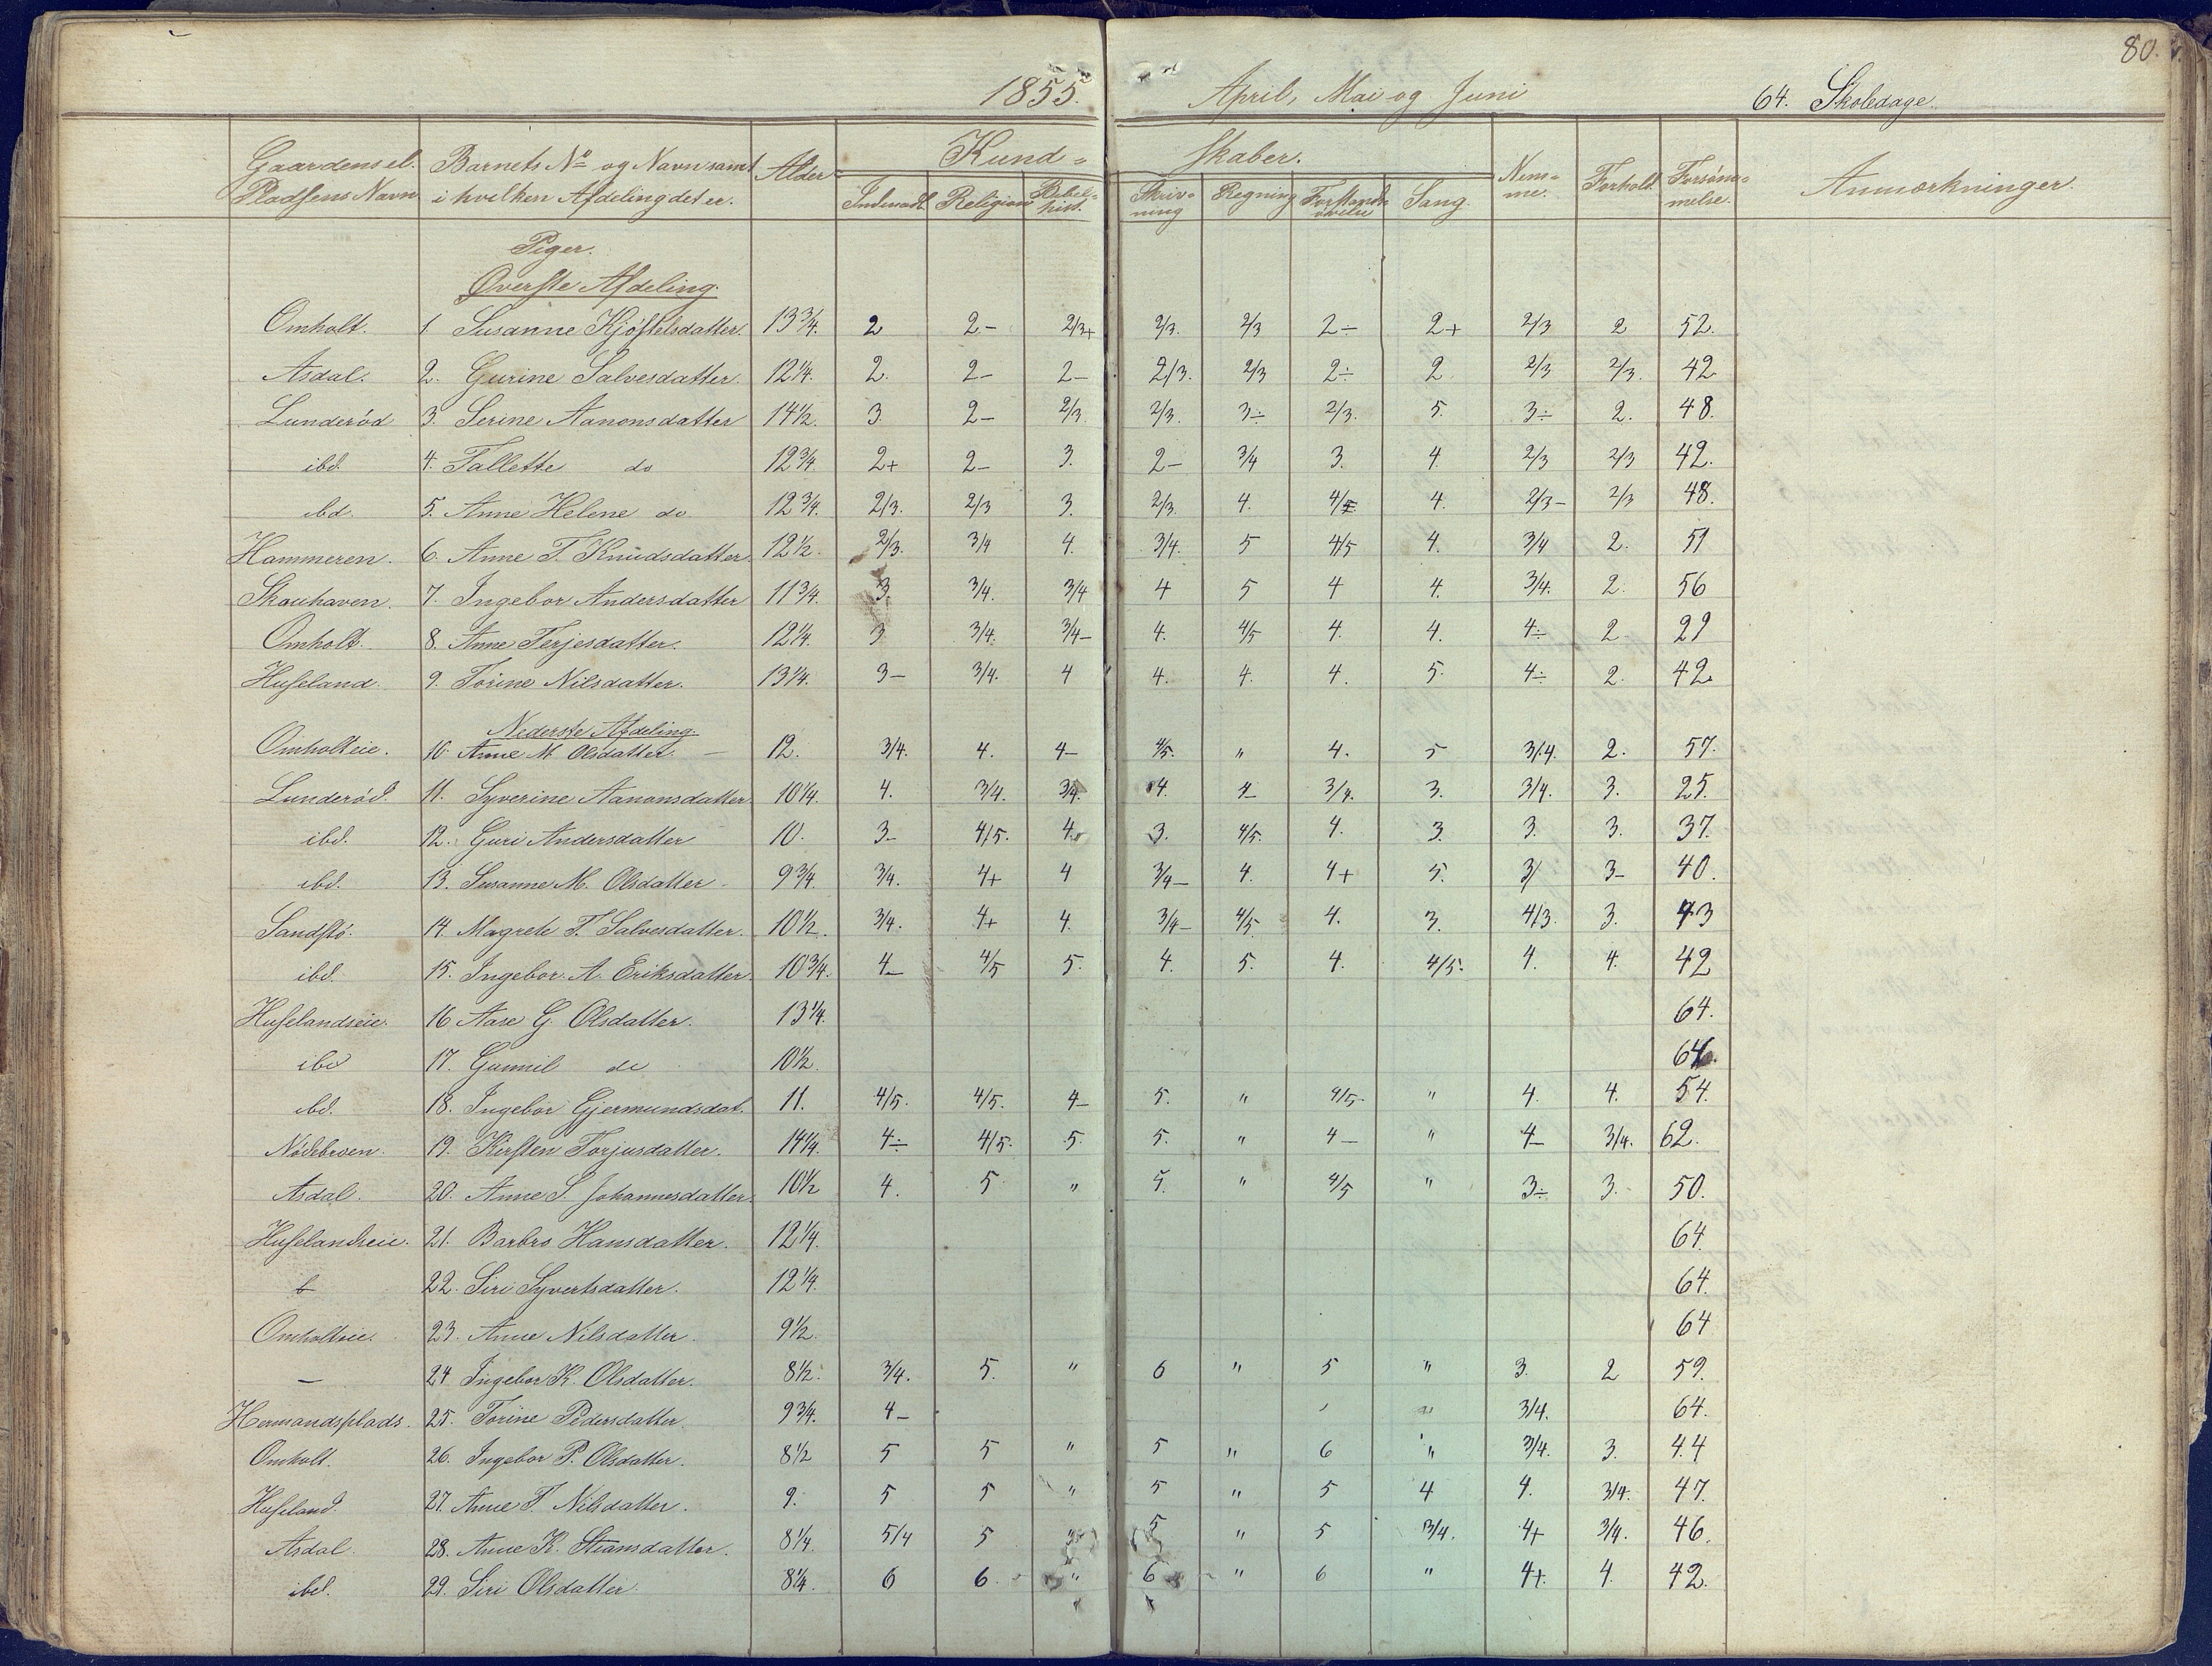 80.
1855. April, Mai og Juni 64. Skoledage.
Gaardens el. Pladsens Navn | Barnets No og Navn samt i hvilken Afdeling det er. | Alder | Kund= skaber. | Nem=me. | Forhold | Forsøm=melse. | Anmærkninger.
Indenadl. | Religion | Bibel=hist. | Skriv=ning | Regning | Forstands øvelse | Sang.
Piger.
Øverste Afdeling.
Omholt. 1. Susanne Kjøstelsdatter. 13 3/4. 2 2- 2/3+ 2/3. 2/3 2÷ 2+ 2/3 2 52.
Asdal. 2. Gurine Salvesdatter. 12 1/4. 2. 2- 2- 2/3. 2/3 2÷ 2 2/3 2/3. 42
Lunderød 3. Serine Aanonsdatter 14 1/2. 3. 2- 2/3. 2/3. 3÷ 2/3. 5. 3÷ 2. 48.
ibd. 4. Tallette do 12 3/4. 2+ 2- 3. 2- 3/4 3. 4. 2/3 2/3 42.
ibd. 5. Anne Helene do 12 3/4. 2/3. 2/3 3. 2/3. 4. 4/5 4. 2/3- 2/3 48.
Hammeren. 6. Anne T. Knudsdatter. 12 1/2. 2/3. 3/4 4. 3/4. 5 4/5 4. 3/4 2. 51
Skouhaven. 7. Ingebor Andersdatter 11 3/4. 3. 3/4. 3/4 4 5 4 4. 3/4. 2. 56
Omholt. 8. Anne Terjesdatter. 12 1/4. 3 3/4. 3/4- 4. 4/5 4. 4. 4÷ 2. 29
Huseland. 9. Torine Nilsdatter. 13 1/4. 3- 3/4. 4 4. 4. 4. 5. 4÷ 2. 42.
Nederste Afdeling.
Omholteie. 10. Anne M. Olsdatter. 12. 3/4. 4. 4- 4/5. " 4. 5 3/4. 2. 57.
Lunderød. 11. Syverine Aanonsdatter 10 1/4. 4. 3/4. 3/4. 4. 4- 3/4. 3. 3/4. 3. 25.
ibd. 12. Guri Andersdatter 10. 3- 4/5. 4. 3. 4/5. 4. 3. 3. 3. 37.
ibd. 13. Susanne M. Olsdatter 9 3/4. 3/4. 4+ 4 3/4- 4. 4+ 5. 3/ 3- 40.
Sandstø. 14. Magrete T. Salvesdatter. 10 1/2. 3/4. 4+ 4. 3/4- 4/5. 4. 3. 4/3. 3. 43
ibd. 15. Ingebor. A. Eriksdatter. 10 3/4. 4- 4/5 5. 4. 5. 4. 4/5. 4. 4. 42
Huselandseie. 16 Aase G. Olsdatter. 13 1/4. 64.
ibd 17. Gunnil do 10 1/2. 64.
ibd. 18. Ingebor Gjermundsdat. 11. 4/5. 4/5. 4- 5. " 4/5. " 4. 4. 54.
Nødebroen. 19. Kirsten Torjusdatter. 14 1/4. 4÷ 4/5. 5. 5. " 4- " 4- 3/4. 62.
Asdal. 20. Anne S. Johannesdatter. 10 1/2 4. 5 " 5. " 4/5 " 3÷ 3. 50.
Huselandseie. 21. Barbro Hansdatter. 12 1/4. 64.
22. Siri Syvertsdatter. 12 1/4. 64.
Omholteie. 23. Anne Nilsdatter. 9 1/2. 64
— 24 Ingebor K. Olsdatter. 8 1/2. 3/4. 5. " 6 " 5 " 3. 2 59.
Hermandsplads. 25. Torine Pedersdatter 9 3/4. 4- 3/4. 64.
Omholt. 26. Ingebor P. Olsdatter. 8 1/2 5 5 " 5 " 6 " 3/4. 3. 44
Huseland. 27. Anne T. Nilsdatter. 9. 5 5 " 5 " 5 4 4. 3/4. 47.
Asdal. 28. Anne K. Stiansdatter. 8 1/4. 5/4 5 " 5 " 5 3/4. 4+ 3/4. 46.
ibd. 29. Siri Olsdatter. 8 1/4. 6 6. " 6 " 6 " 4+. 4. 42.